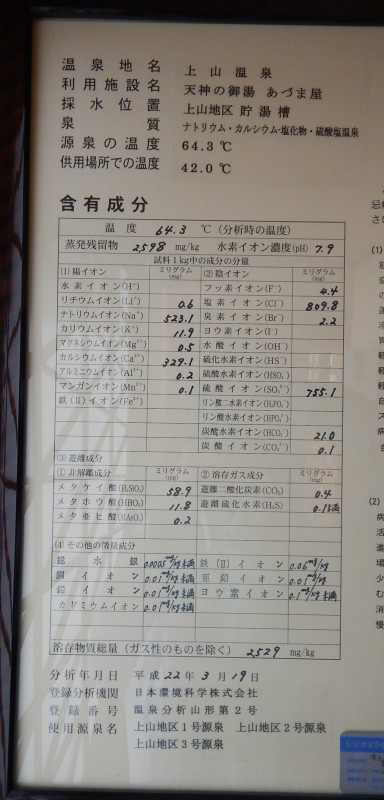 温泉地名 上山温泉
利用施設名 天神の御湯 あづま屋
採水位置 上山地区 貯湯槽
泉質 ナトリウム・カルシウム-塩化物・硫酸塩温泉
源泉の温度 64.3℃
供用場所での温度 42.0℃
含有成分
温度 64.3 ℃(分析時の温度)
蒸発残留物 2,598 mg/kg 水素イオン濃度(pH) 7.9
試料1kg中の成分の分量
(1)陽イオン ミリグラム(mg) (2)陰イオン ミリグラム(mg)
水素イオン(H⁺) フッ素イオン(F⁻) 4.4
リチウムイオン(Li⁺) 0.6 塩素イオン(Cl⁻) 809.8
ナトリウムイオン(Na⁺) 523.1 臭素イオン(Br⁻) 2.2
カリウムイオン(K⁺) 11.9 ヨウ素イオン(I⁻)
マグネシウムイオン(Mg²⁺) 0.5 水酸イオン(OH⁻)
カルシウムイオン(Ca²⁺) 329.1 硫化水素イオン(HS⁻)
アルミニウムイオン(Al³⁺) 0.2 硫酸水素イオン(HSO₄⁻)
マンガンイオン(Mn²⁺) 0.1 硫酸イオン(SO₄²⁻) 755.1
鉄(Ⅱ)イオン(Fe²⁺) リン酸二水素イオン(H₂PO₄⁻)
リン酸水素イオン(HPO₄²⁻)
炭酸水素イオン(HCO₃⁻) 21.0
炭酸イオン(CO₃²⁻) 0.1
(3)遊離成分
①非解離成分 ミリグラム(mg) ②溶存ガス成分 ミリグラム(mg)
メタケイ酸(H₂SiO₃) 58.9 遊離二酸化炭素(CO₂) 0.4
メタホウ酸(HBO₂) 11.8 遊離硫化水素(H₂S) 0.1未満
メタ亜ヒ酸(HAsO₂) 0.2
(4)その他の微量成分
総水銀 0.0005mg/kg未満 鉄(Ⅱ)イオン 0.06mg/kg
銅イオン 0.01mg/kg未満 亜鉛イオン 0.01mg/kg
鉛イオン 0.01mg/kg未満 ヨウ素イオン 0.1mg/kg未満
カドミウムイオン 0.01mg/kg未満
溶存物質総量(ガス性のものを除く) 2,529 mg/kg
分析年月日 平成22年3月19日
登録分析機関 日本環境科学株式会社
登録番号 温泉分析山形第2号
使用源泉名 上山地区1号源泉 上山地区2号源泉
上山地区3号源泉